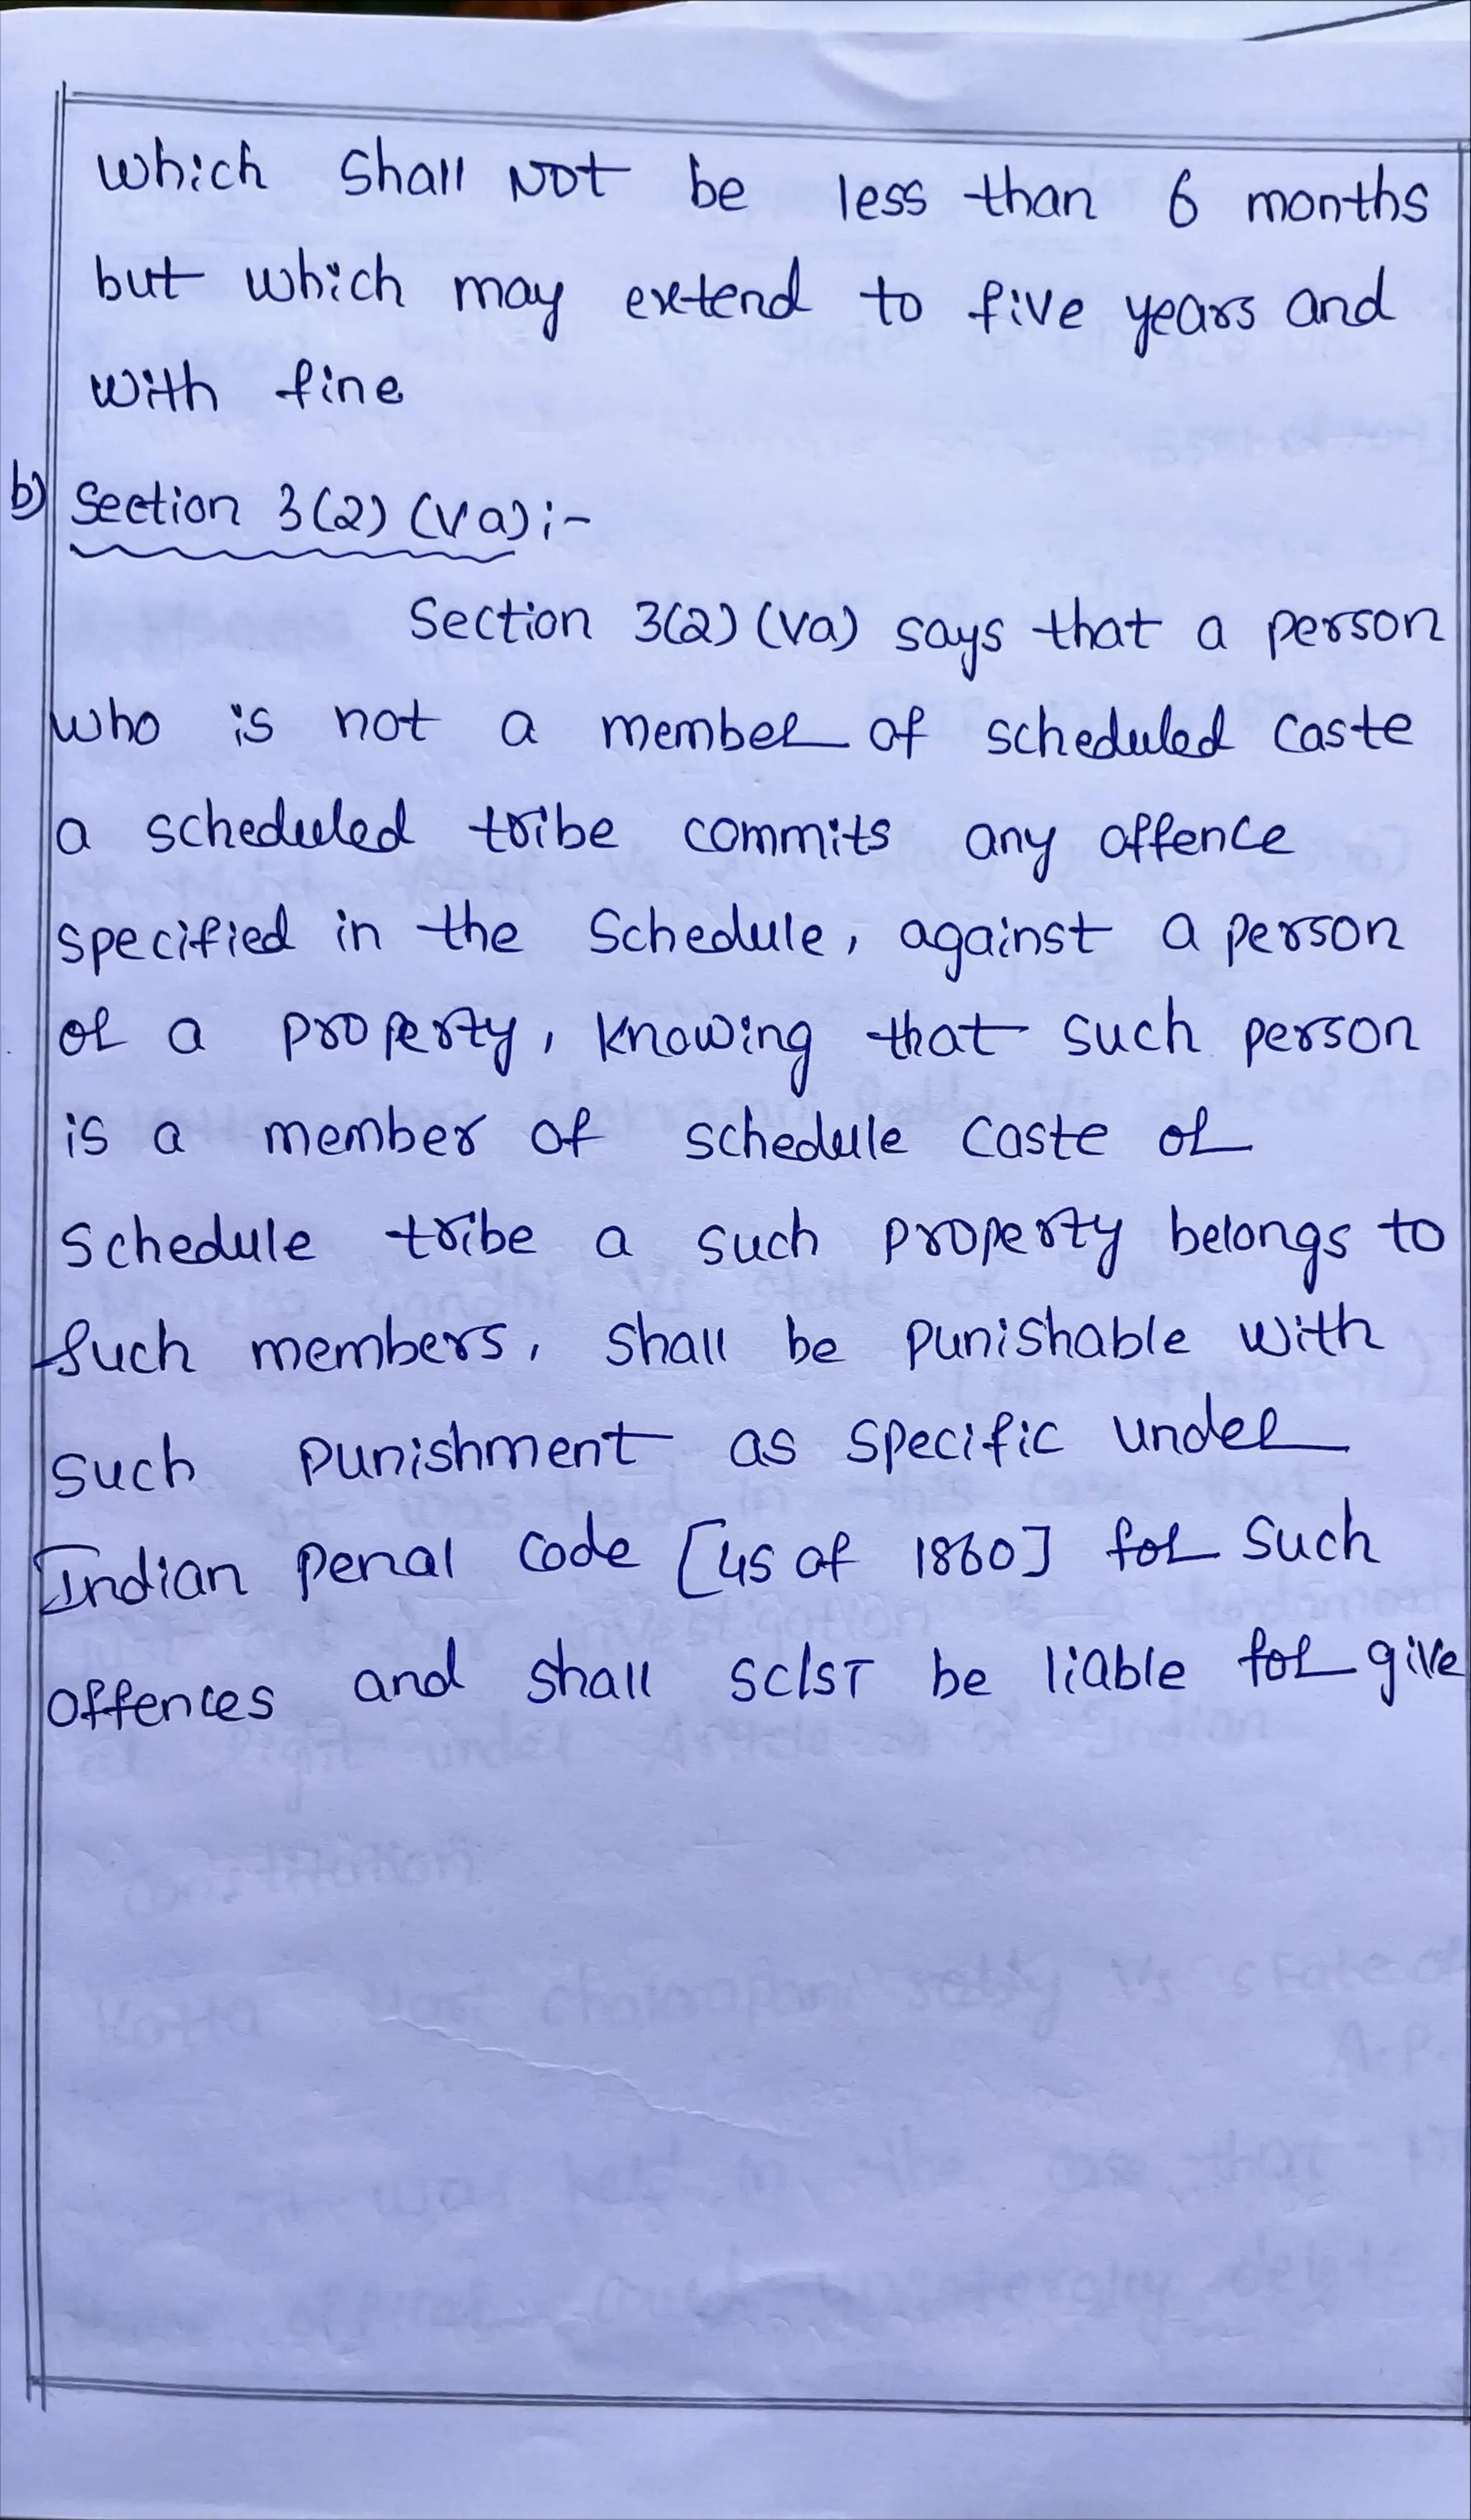 which shall NOT be less than 6 months
but which may extend to five years and
with fine
b) Section 3(2) (va):-
Section 3(2) (va) says that a person
who is not a member of scheduled caste
a scheduled tribe commits any offence
specified in the Schedule, against a person
or a property, knowing that such person
is a member of schedule caste or
Schedule tribe a such property belongs to
such members, shall be punishable with
such punishment as specific under
Indian penal code [45 of 1860] for such
offences and shall SC/ST be liable for give